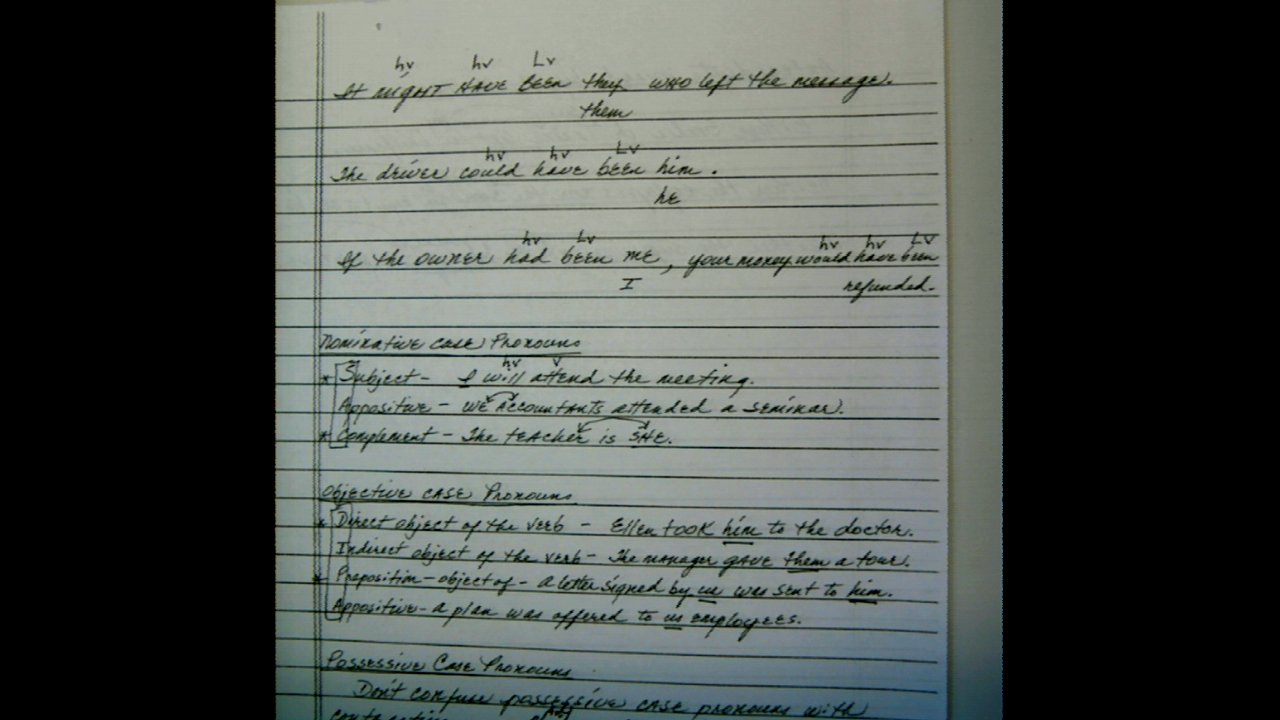 hv hv Lv
It might HAVE BEEN they who left the message.
them
hv hv Lv
The driver could have been him.
he
hv Lv hv hv LV
If the owner had been me, your money would have been
I refunded.
Nominative case Pronouns
hv v
* Subject - I will attend the meeting.
Appositive - we Accountants attended a seminar.
* Complement - The teacher is SHE.
Objective CASE Pronouns
* Direct object of the verb - Ellen took him to the doctor.
Indirect object of the verb - The manager gave them a tour.
* Preposition - object of - a letter signed by us was sent to him.
Appositive - a plan was offered to us employees.
Possessive Case Pronouns
Don't confuse possessive case pronouns with